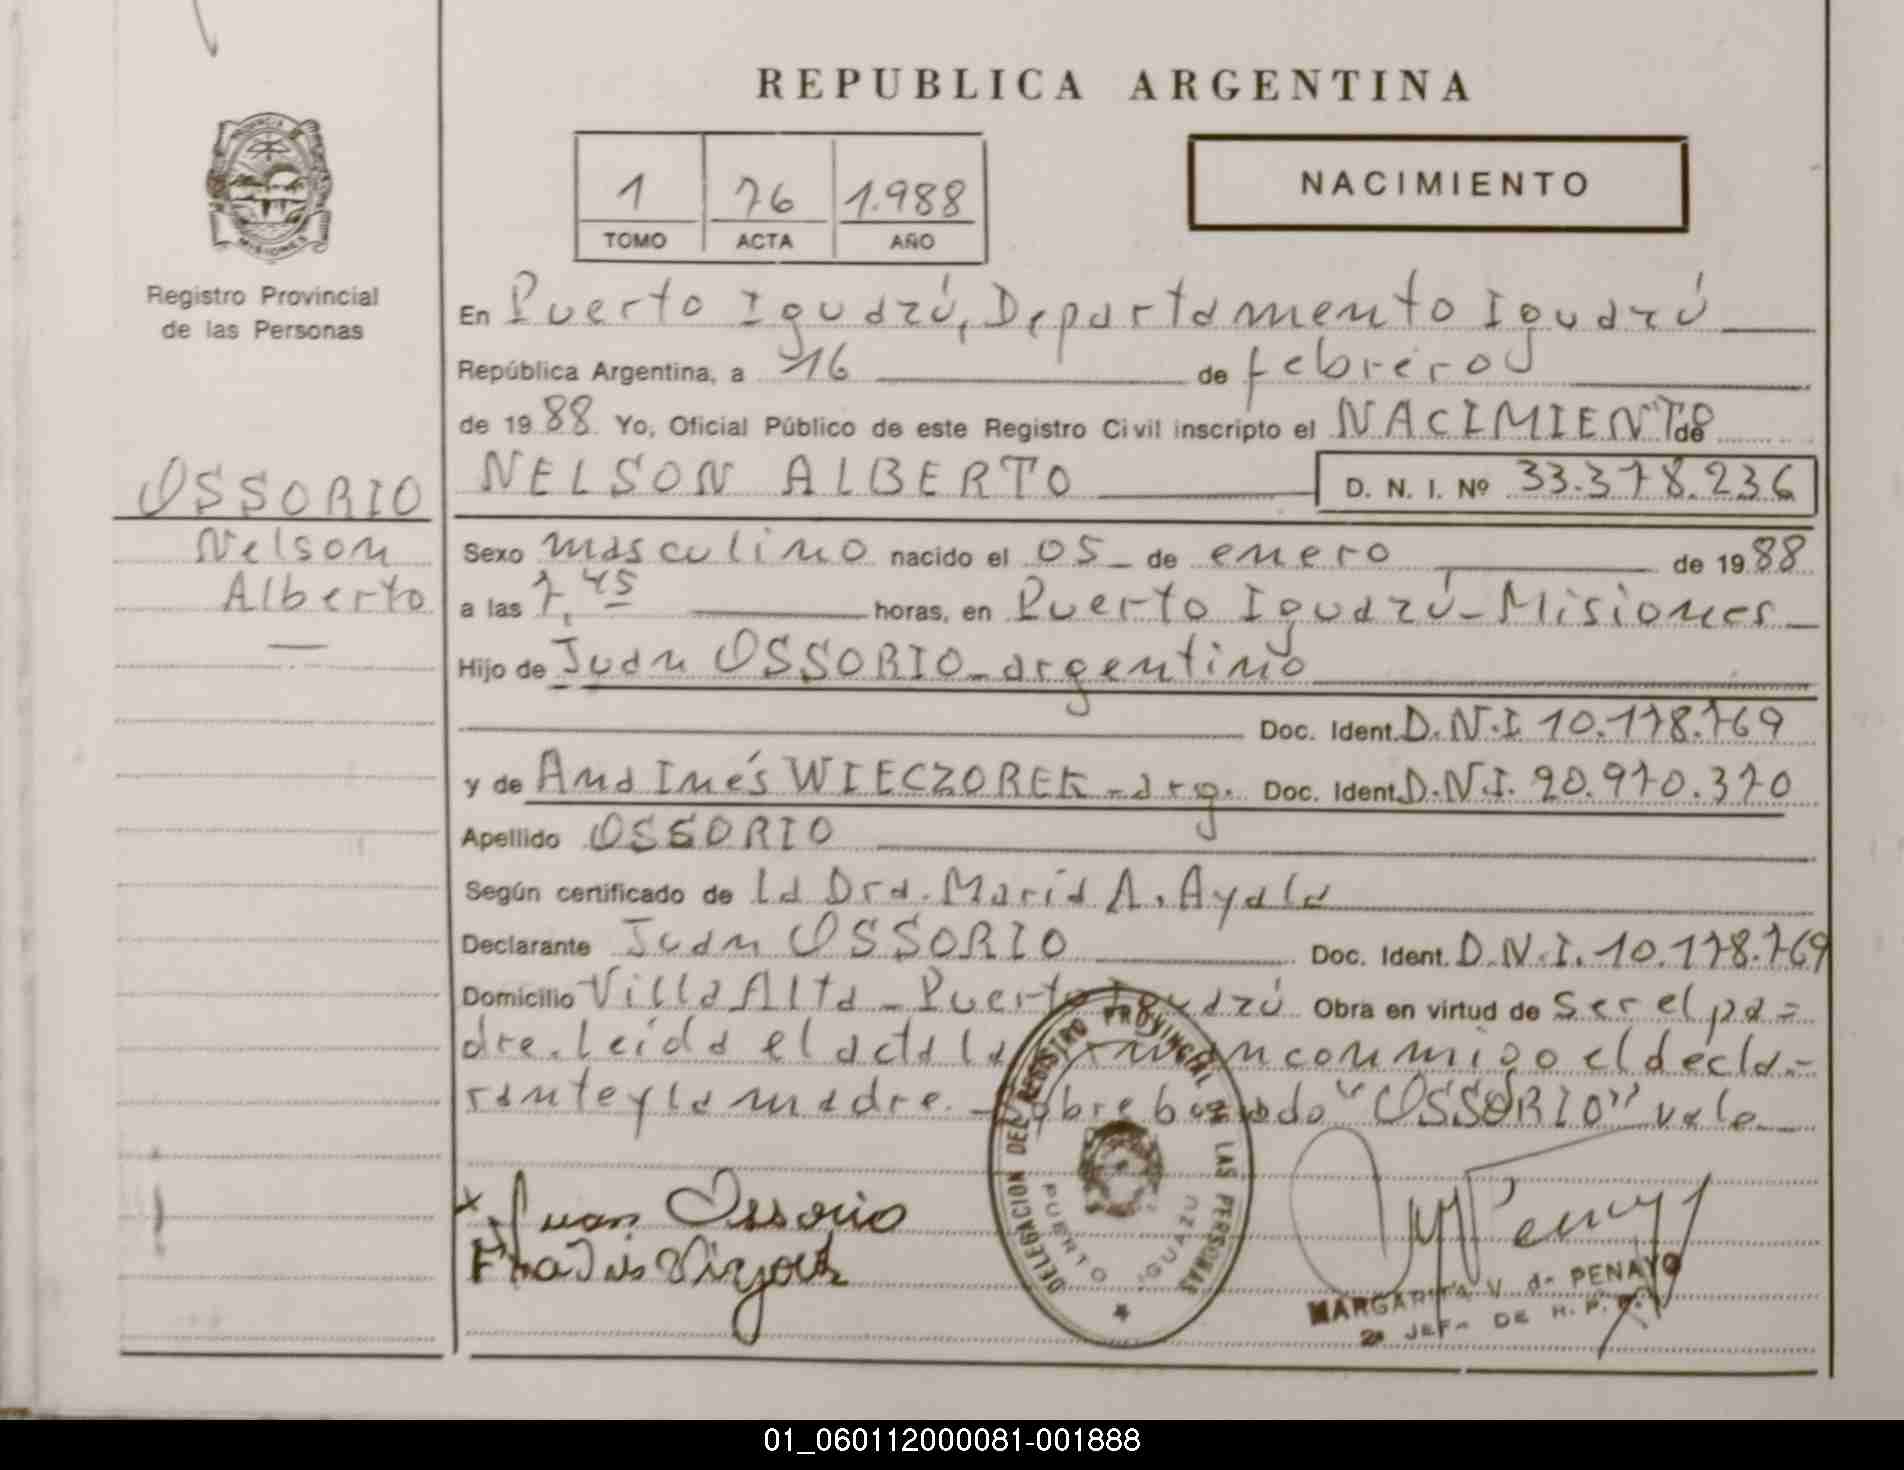 REPUBLICA ARGENTINA
PROVINCIA DE MISIONES
Registro Provincial
de las Personas
1 76 1.988
TOMO ACTA AÑO
NACIMIENTO
En Puerto Iguazú, Departamento Iguazú
República Argentina, a 16 de febrero
de 1988 Yo, Oficial Público de este Registro Civil inscripto el NACIMIENTO de
OSSORIO
Nelson
Alberto
NELSON ALBERTO D. N. I. Nº 33.378.236
Sexo masculino nacido el 05 de enero de 1988
a las 7,45 horas, en Puerto Iguazú - Misiones
Hijo de Juan OSSORIO - argentino
Doc. Ident. D.N.I 10.178.769
y de Ana Inés WIECZOREK - arg. Doc. Ident. D.N.I. 20.970.370
Apellido OSSORIO
Según certificado de la Dra. Maria A. Ayala
Declarante Juan OSSORIO Doc. Ident. D.N.I. 10.178.769
Domicilio Villa Alta - Puerto Iguazú Obra en virtud de ser el pa=
dre. leida el acta la firman conmigo el decla-
rante y la madre. - Sobre borrado "OSSORIO" vale
DELEGACION DEL REGISTRO PROVINCIAL DE LAS PERSONAS
PUERTO IGUAZU
x Juan Ossorio
MARGARITA V. de PENAYO
2a JEFA DE R. P. P.
01_060112000081-001888